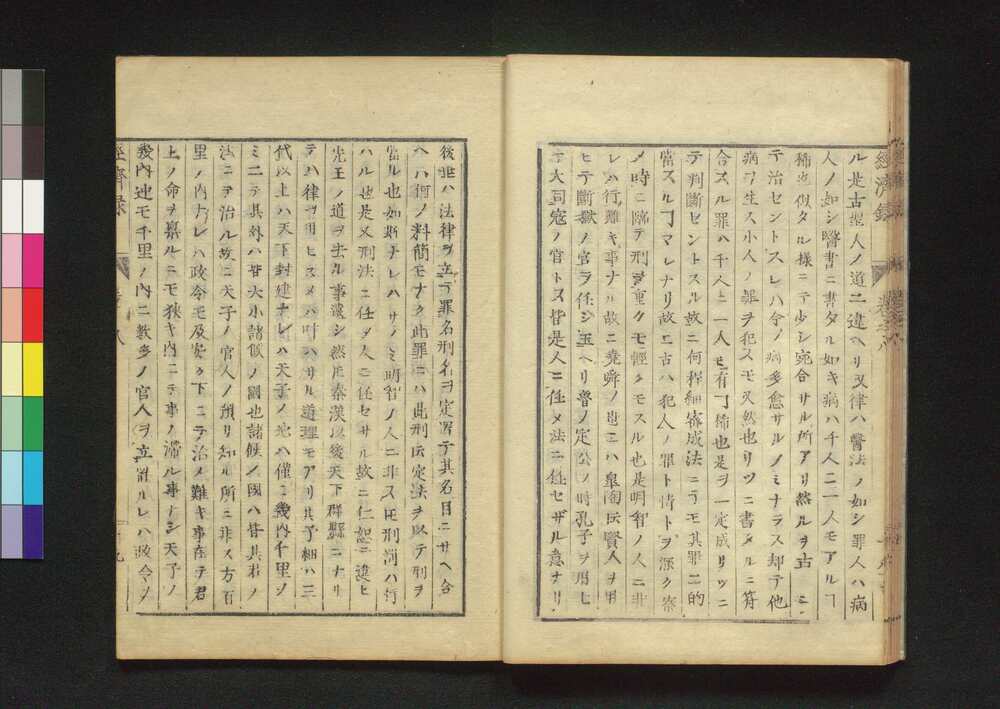 ル是古聖人ノ道ニ違ヘリ又律ハ醫法ノ如シ罪人ハ病
人ノ如シ醫書ニ書タル如キ病ハ千人ニ一人モアルヿ
稀也似タル様ニテ少シ宛合サル所アリ然ルヲ古
テ治セントスレハ今ノ病多愈サルノミナラス却テ他
病ヲ生ス小人ノ罪ヲ犯スモ又然也リツニ書タルニ符
合スル罪ハ千人ニ一人モ有ヿ稀也是ヲ一定成リツニ
テ判断セントスル故ニ何程細審成法ニテモ其罪ニ的
當スルヿマレナリ故ニ古ハ犯人ノ罪ト情トヲ深ク察
メ時ニ臨テ刑ヲ重クモ輕クモスル也是明智ノ人ニ非
レハ行難キ事ナル故ニ堯舜ノ ニハ皐陶 賢人ヲ用
ヒテ断獄ノ官ヲ任シ玉ヘリ魯ノ定公ノ時孔子ヲ用ヒ
テ大司寇ノ官トス皆是人ニ任メ法ニ任セザル意ナリ
經濟録
後世ハ法律ヲ立テ罪名刑名ヲ定置テ其名目ニサヘ合
ヘハ何ノ料簡モナク此罪ニハ此刑 定法ヲ以テ刑ヲ
當ル也如斯ナレハサノミ明智ノ人ニ非スモ刑罰ハ行
ハル也是又刑法ニ任ヲ人ニ任セサル故ニ仁恕ニ違ヒ
先王ノ道ヲ去ル事遠シ然 秦漢以後天下群縣ニナリ
テハ律ヲ用ヒスメハ叶ハサル道理モアリ其子細ハ三
代以上ハ天下封建ナレハ天子ノ地ハ僅ニ畿内千里ノ
ミニテ其外ハ皆大小諸候ノ國也諸候ノ國ハ皆其君ノ
法ニヲ治ル故ニ天子ノ官人ノ預リ知ル所ニ非ス方百
里ノ内ナレハ政令モ及安ク下ニテ治メ難キ事在テ君
上ノ命ヲ稟ルニモ狭キ内ニテ事ノ滞ル事ナシ天子ノ
畿内迚モ千里ノ内ニ数多ノ官人ヲ立置ルレハ政令ノ
經濟録